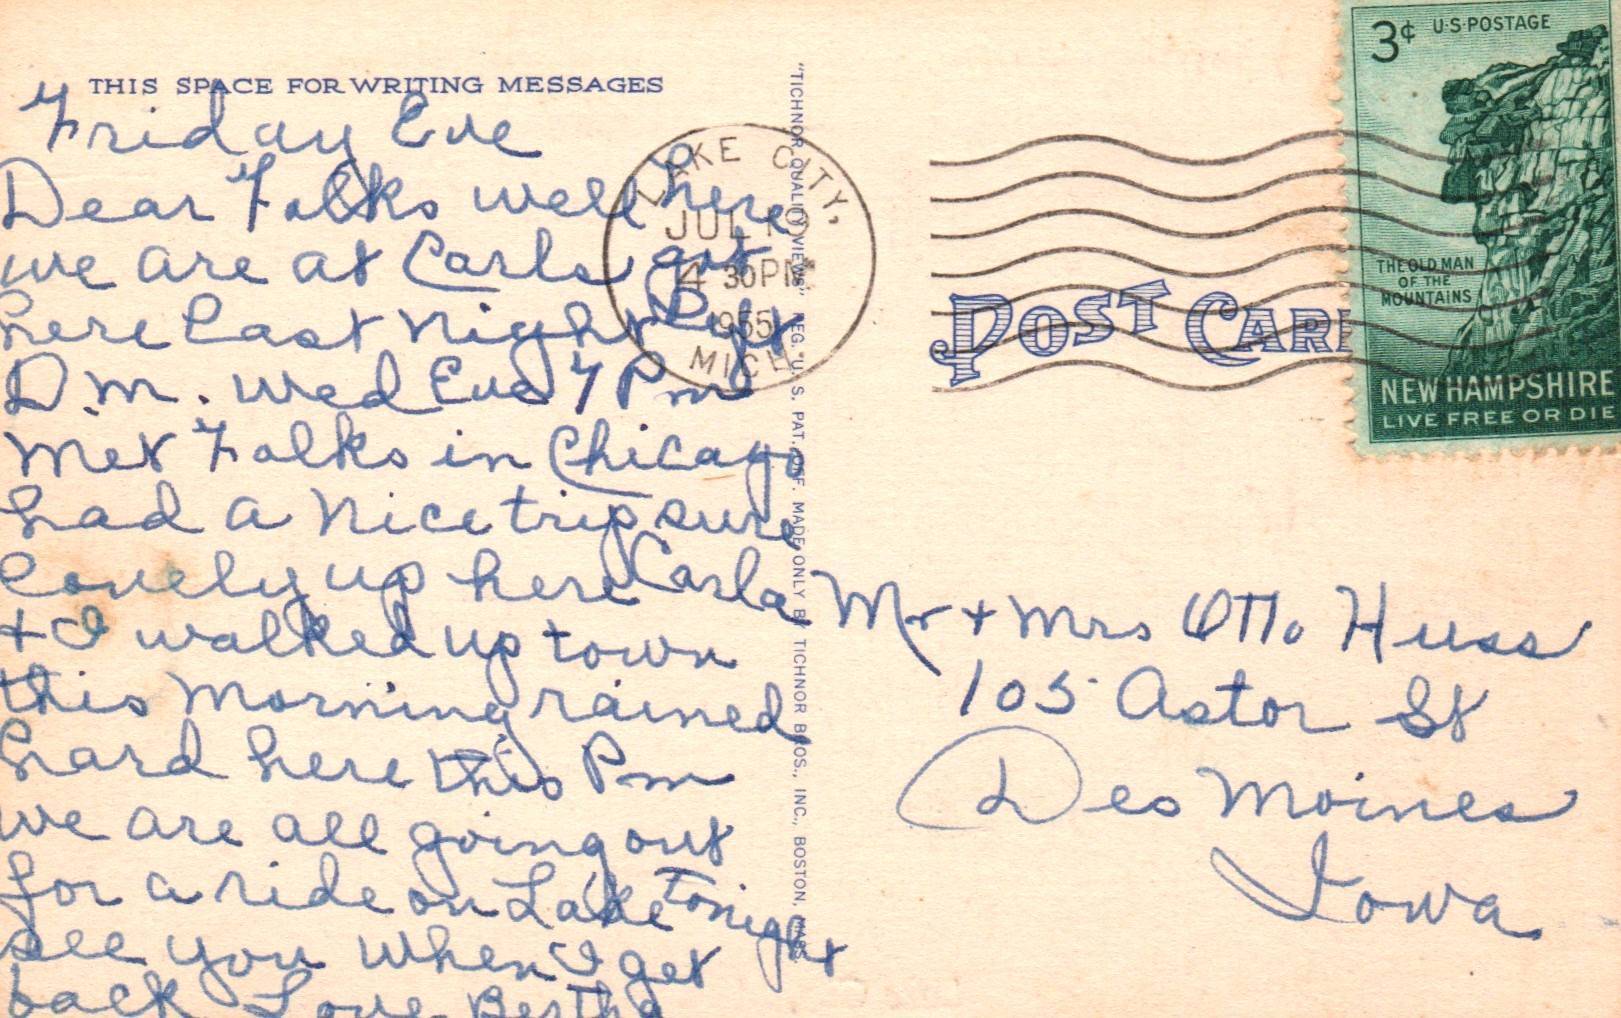 THIS SPACE FOR WRITING MESSAGES
Friday Eve
Dear Folks well here
we are at Carls got
here Last Night Left
D.M. Wed Eve 7 Pm
Met Folks in Chicago
had a Nice trip sure
Lovely up here Carla
+ I walked up town
this Morning rained
hard here this Pm
we are all going out
for a ride on Lake Tonight
see you when I get
back Love Bertha
"TICHNOR QUALITY VIEWS" REG. U. S. PAT. OFF. MADE ONLY BY TICHNOR BROS., INC., BOSTON, MASS.
LAKE CITY,
JUL
4 30 PM
1955
MICH
POST CARD
3¢ U·S·POSTAGE
THE OLD MAN
OF THE
MOUNTAINS
NEW HAMPSHIRE
LIVE FREE OR DIE
Mr + Mrs Otto Huss
105 Astor St
Des Moines
Iowa